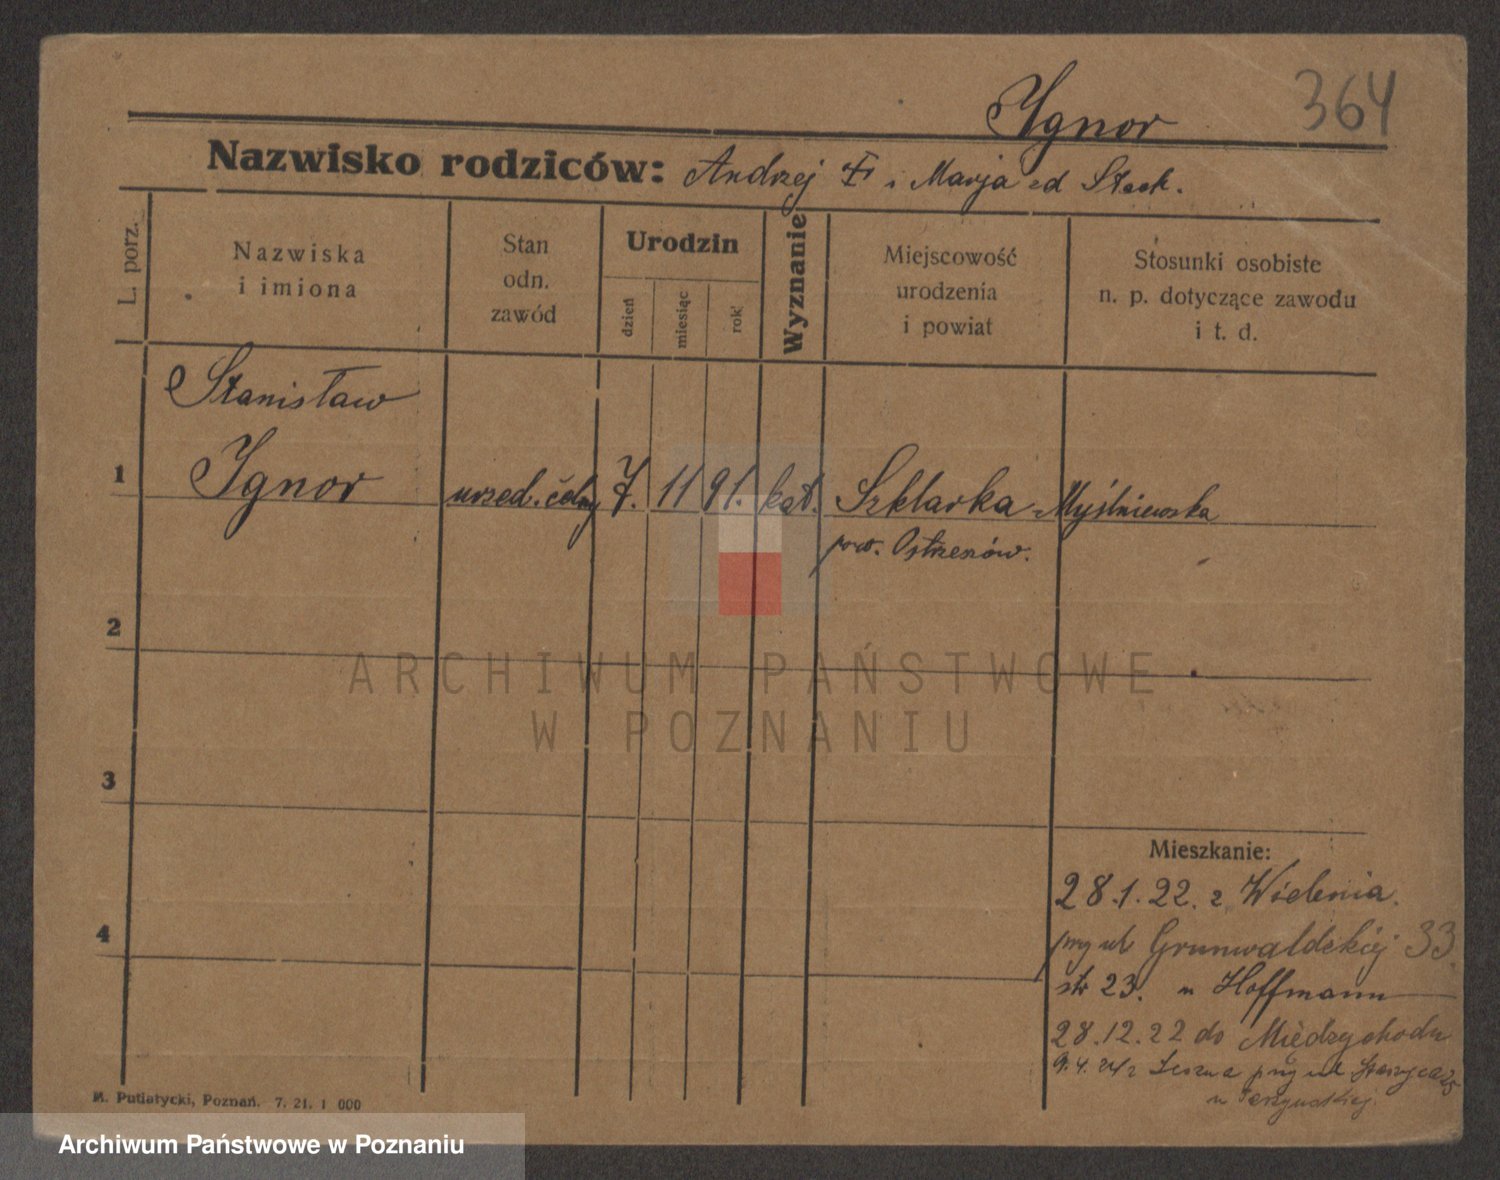 Ygnor 364
Nazwisko rodziców: Andrzej i Marja zd Stach.
L. porz.
Nazwiska
i imiona
Stan
odn.
zawód
Urodzin
dzień
miesiąc
rok
Wyznanie
Miejscowość
urodzenia
i powiat
Stosunki osobiste
n. p. dotyczące zawodu
i t. d.
Stanisław
1 Ygnor urzęd. celny 7. 11 91. kat. Szklarka Myślniewska
pow. Ostrzeszów.
2
3
4
Mieszkanie:
28.1.22. z Wielenia.
przy ul Grunwaldzkiej 33
str 23. u Hoffmann
28.12.22 do Międzychodu
9.4.24 z Leszna przy ul Staszyca 25
u
M. Putiatycki, Poznań. 7. 21. 1 000
ARCHIWUM PAŃSTWOWE
W POZNANIU
Archiwum Państwowe w Poznaniu